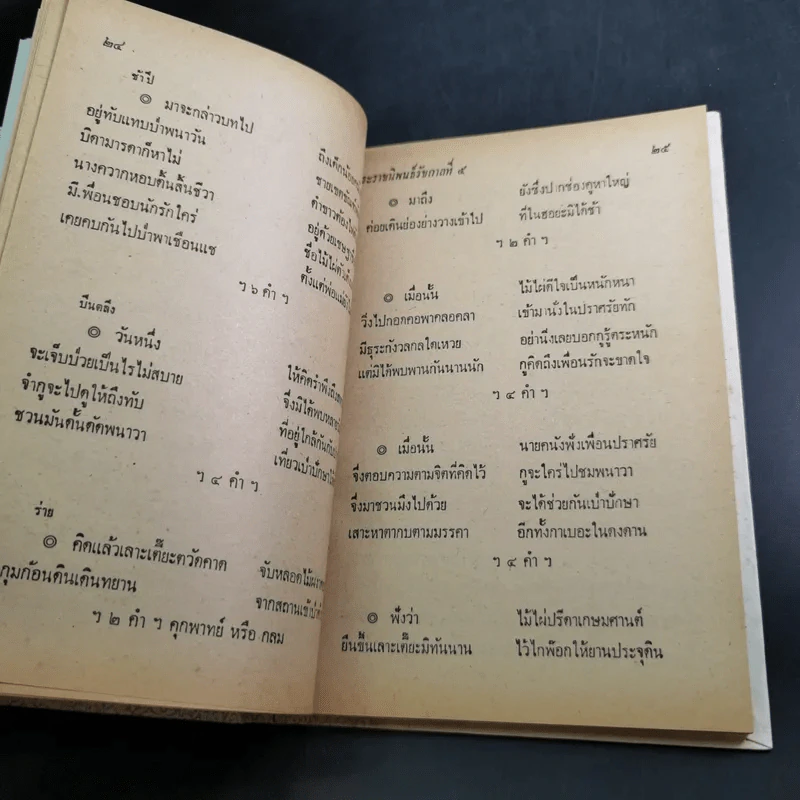 ๒๔
ช้าปี่
๏ มาจะกล่าวบทไป
อยู่ทับแทบป่าพนาวัน ถึงเด็กน้อย
บิดามารดาก็หาไม่ ชายเขต
นางควากหอบดั้นสิ้นชีวา ค่ำขาวต้อง
มีเพื่อนชอบนักรักใคร่ อยู่ด้วย
เคยคบกันไปป่าพาเชือนแช ชื่อไม้ไผ่
ฯ ๖ คำ ฯ ตั้งแต่พ่อแม่
ปีนตลิ่ง
๏ วันหนึ่ง
จะเจ็บป่วยเป็นไรไม่สบาย ให้คิดรำพึงถึง
จำกูจะไปดูให้ถึงทับ จึ่งมิได้พบ
ชวนมันดั้นดัดพนาวา ที่อยู่ใกล้กัน
ฯ ๔ คำ ฯ เที่ยวเป่าปักษา
ร่าย
๏ คิดแล้วเลาะเตี๊ยะตวัดคาด จับหลอดไม้
กุมก้อนดินเดินทยาน จากสถานเข้า
ฯ ๒ คำ ฯ คุกพาทย์ หรือ กลม
ระราชนิพนธ์รัชกาลที่ ๕ ๒๕
๏ มาถึง ยังซึ่งปากช่องคูหาใหญ่
ค่อยเดินย่องย่างวางเข้าไป ที่ในฮอยะมิได้ช้า
ฯ ๒ คำ ฯ
๏ เมื่อนั้น ไม้ไผ่ดีใจเป็นหนักหนา
วิ่งไปกอดคอพาคลอคลา เข้ามานั่งในปราศรัยทัก
มีธุระกังวลกลใดเหวย อย่านิ่งเลยบอกกูรู้ตระหนัก
แต่มิได้พบพานกันนานนัก กูคิดถึงเพื่อนรักจะขาดใจ
ฯ ๔ คำ ฯ
๏ เมื่อนั้น นายคนังฟังเพื่อนปราศรัย
จึ่งตอบความตามจิตที่คิดไว้ กูจะใคร่ไปชมพนาวา
จึ่งมาชวนมึงไปด้วย จะได้ช่วยกันเป่าปักษา
เสาะหาตากบตามมรรคา อีกทั้งกาเบอะในดงดาน
ฯ ๔ คำ ฯ
๏ ฟังว่า ไม้ไผ่ปรีดาเกษมศานต์
ยืนขึ้นเลาะเตี๊ยะมิทันนาน ไว้ไกพ๊อกให้ยานประจุดิน